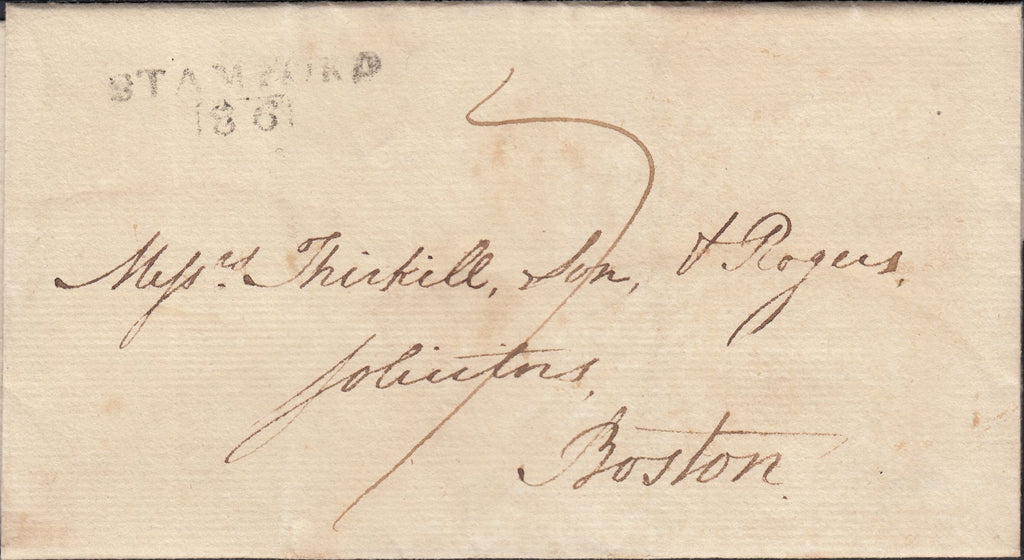 STAMFORD
86
7
Messrs. Thirkill, Son, & Rogers.
Solicitors,
Boston.